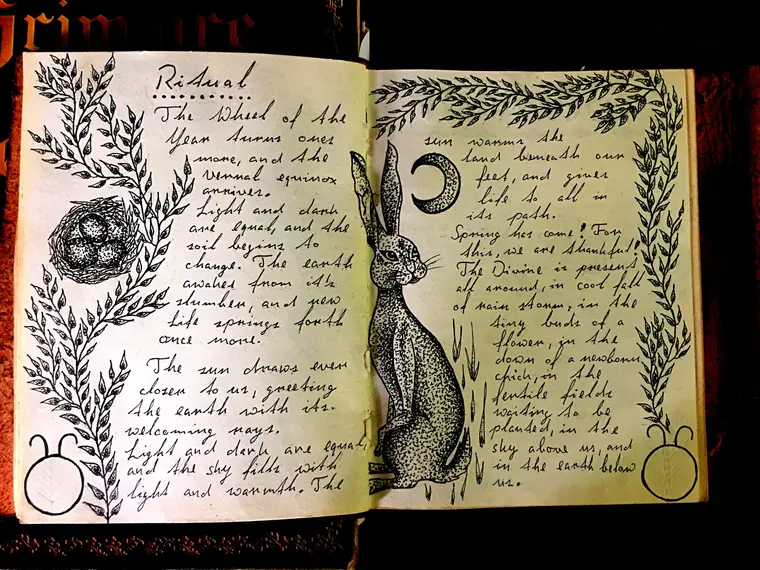 Grimoire
Ritual
The Wheel of the
Year turns ones
more, and the
vernal equinox
arrives.
Light and dark
are equal, and the
soil begins to
change. The earth
awakes from it's
slumber, and new
life springs forth
once more.
The sun draws ever
closer to us, greeting
the earth with its.
welcoming rays.
Light and dark are equal,
and the sky fills with
light and warmth. The
sun warms the
land beneath our
feet, and gives
life to all in
its path.
Spring has come! For
this, we are thankful!
The Divine is present
all around, in cool fall
of rain storm, in the
tiny buds of a
flower, in the
down of a newborn
chick, in the
fertile fields
waiting to be
planted, in the
sky above us, and
in the earth below
us.